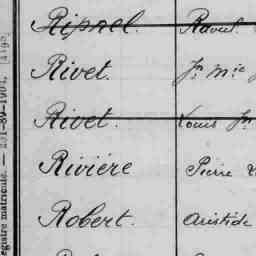 Ripnel. Raoul.
Rivet. Jn Mie
Rivet. Louis Jn
Rivière Pierre
Robert. Aristide
egistre matricule. — 231-89-1904. [4198]